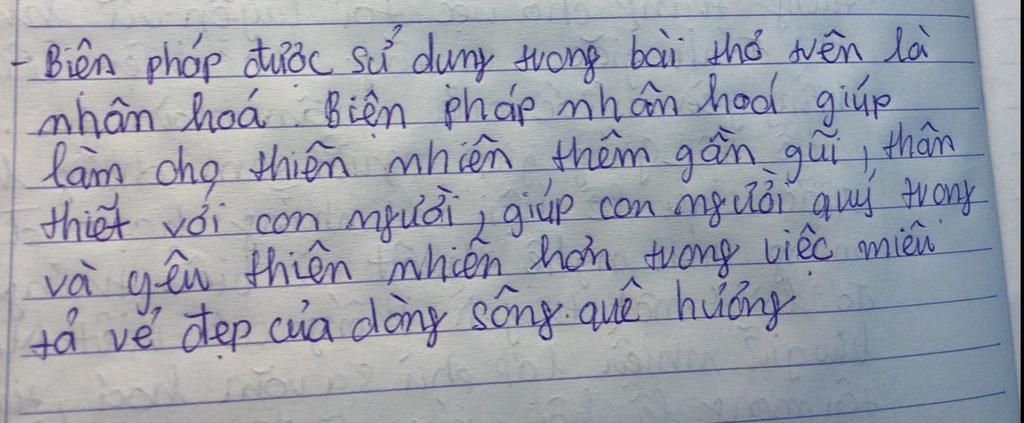 - Biện pháp được sử dụng trong bài thơ trên là
nhân hoá. Biện pháp nhân hoá giúp
làm cho thiên nhiên thêm gần gũi, thân
thiết với con người, giúp con người quý trọng
và yêu thiên nhiên hơn trong việc miêu
tả vẻ đẹp của dòng sông quê hương